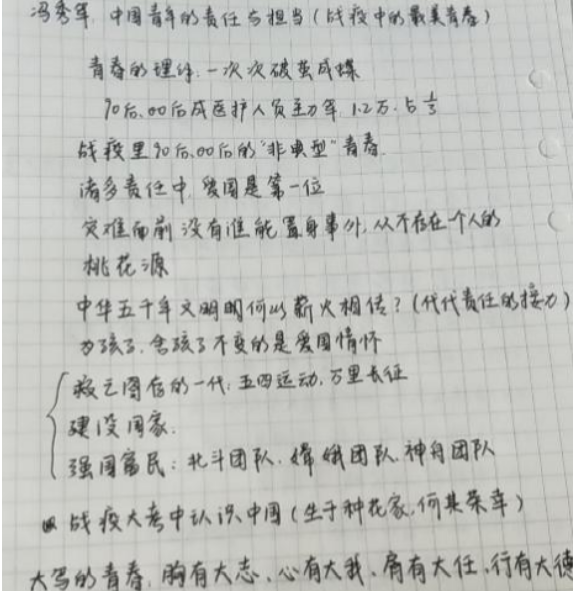 冯秀军 中国青年的责任与担当（战疫中的最美青春）
青春的理解：一次次破茧成蝶
90后、00后成医护人员主力军 1.2万. 占1/3
战疫里90后、00后的“非典型”青春
诸多责任中，爱国是第一位
灾难面前没有谁能置身事外，从不存在一个人的
桃花源
中华五千年文明何以薪火相传？（代代责任的接力）
为孩子、舍孩子不变的是爱国情怀
救亡图存的一代：五四运动，万里长征
建设国家.
强国富民：北斗团队、嫦娥团队、神舟团队
战疫大考中认识中国（生于种花家，何其荣幸）
大写的青春，胸有大志、心有大我、肩有大任、行有大德